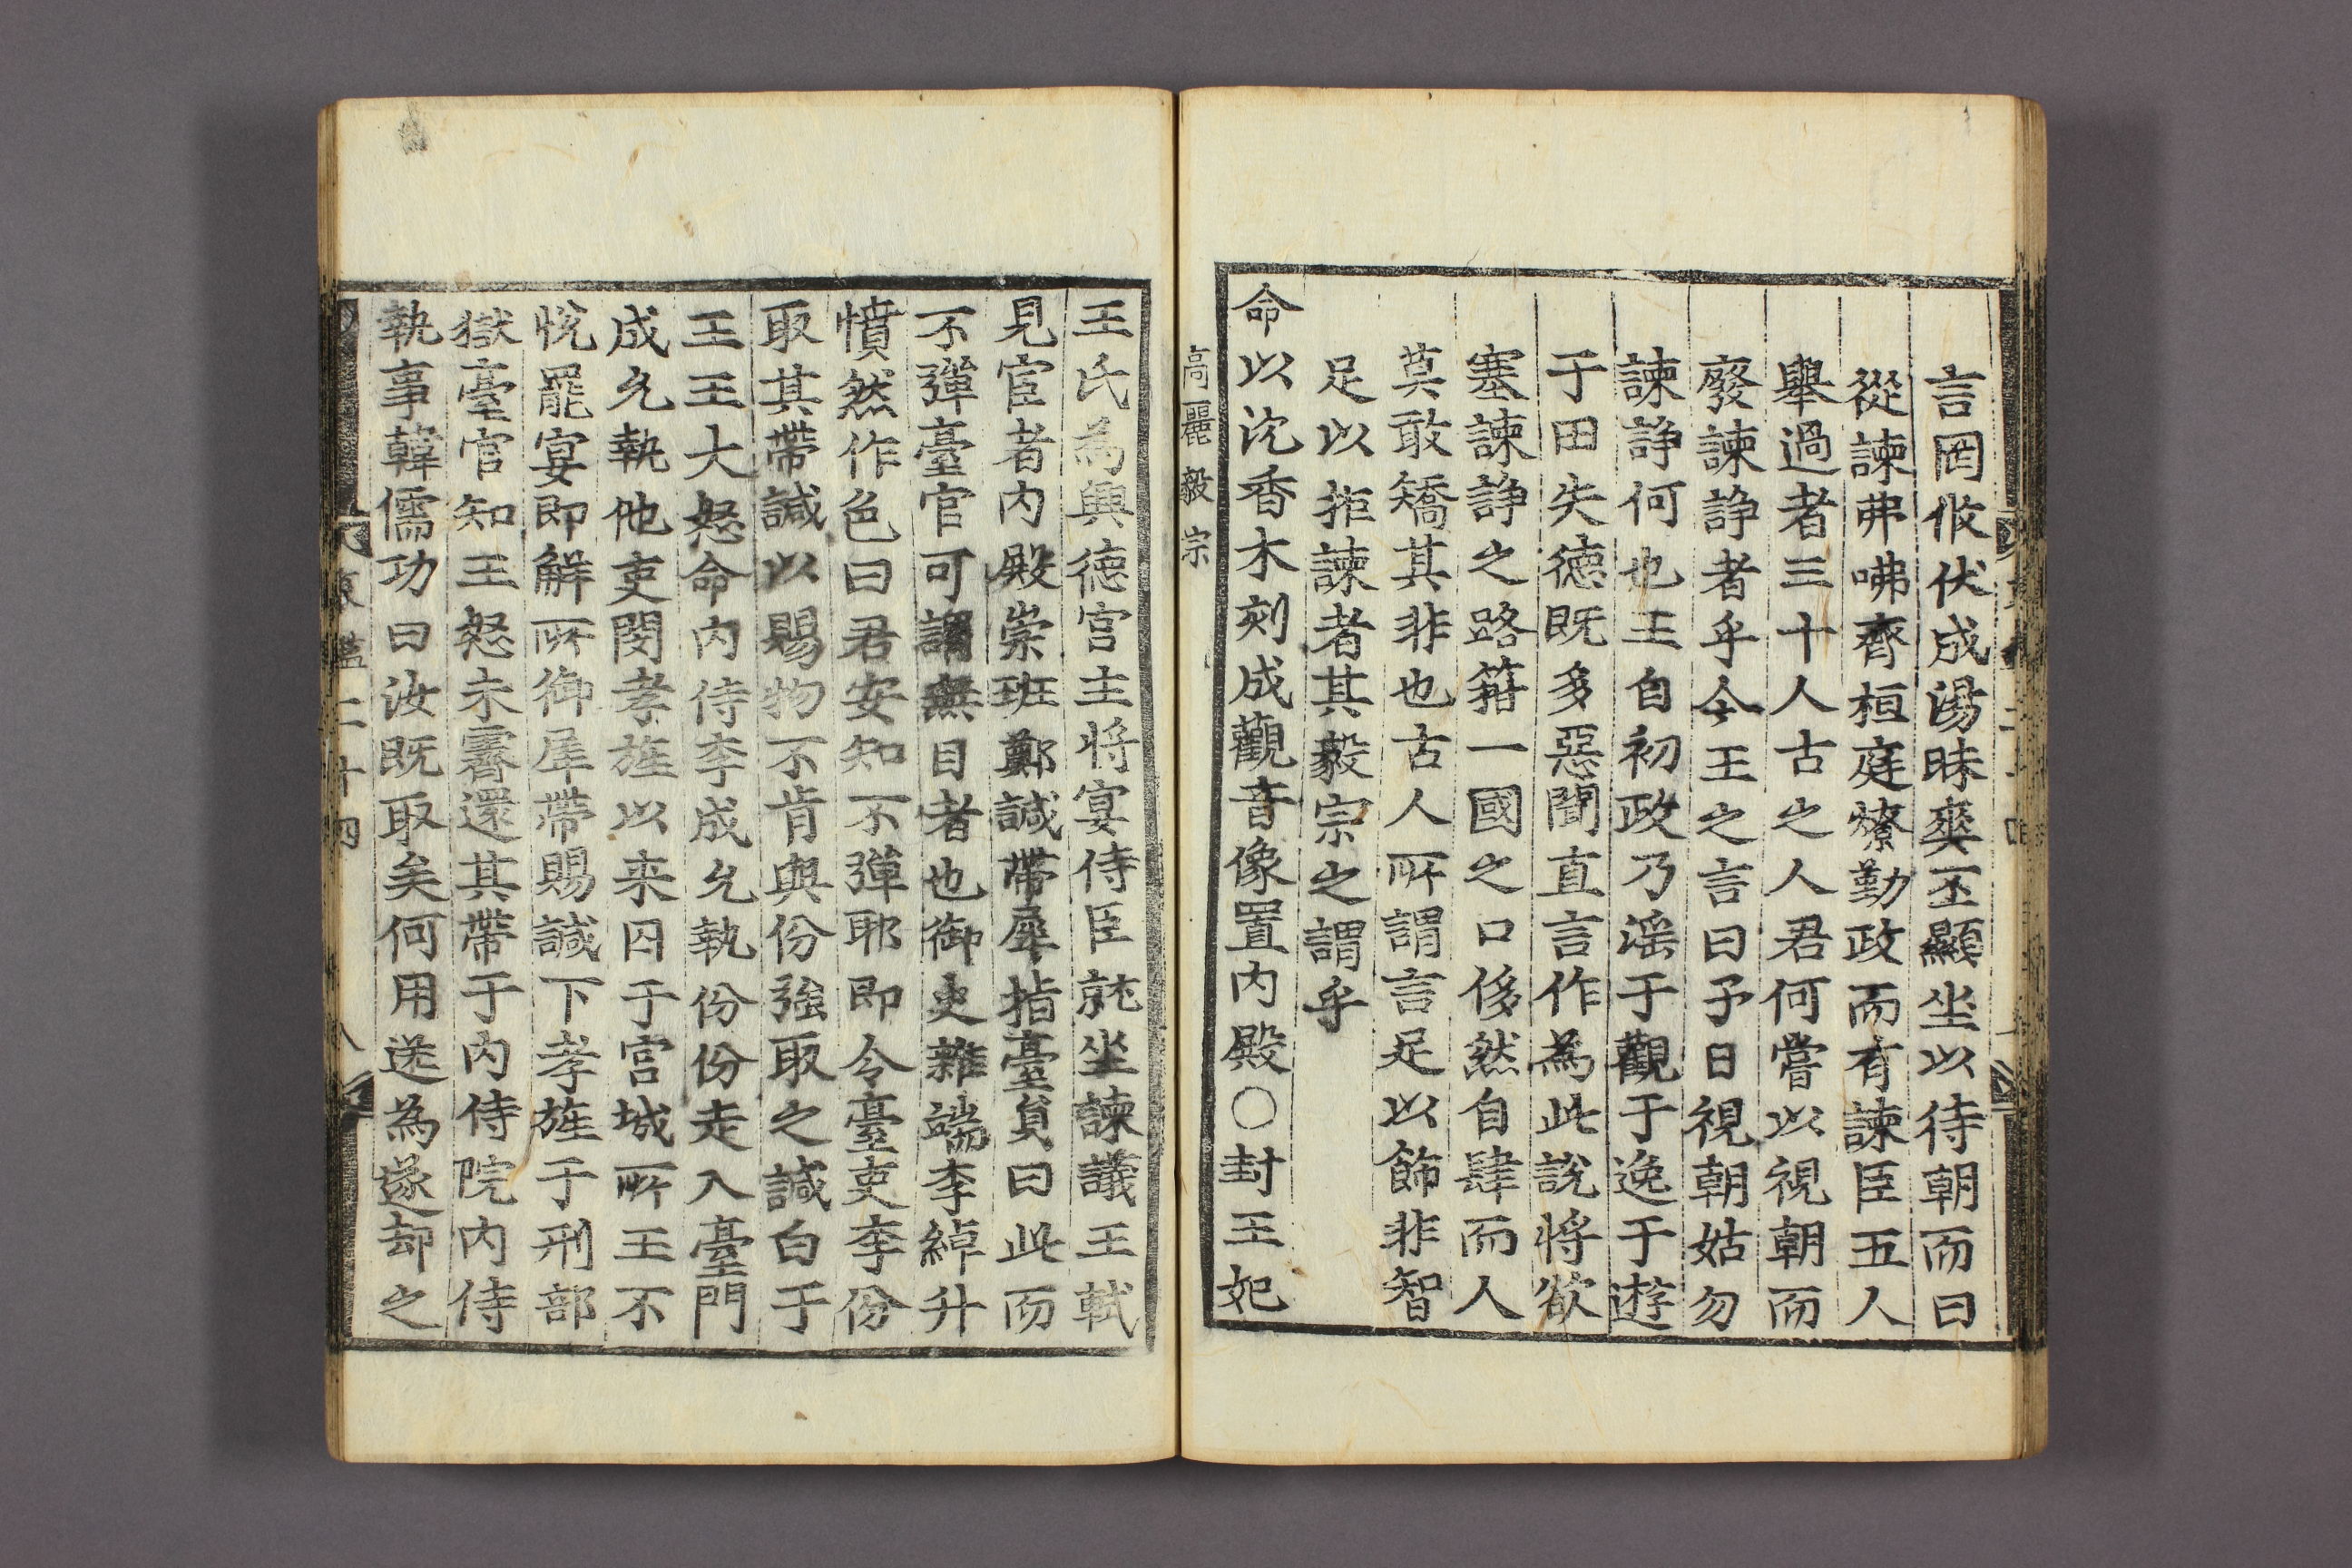 言罔攸伏成湯昧爽丕顯坐以待朝而曰
從諫弗咈齊桓庭燎勤政而有諫臣五人
舉過者三十人古之人君何嘗以視朝而
廢諫諍者乎今王之言曰予日視朝姑勿
諫諍何也王自初政乃滛于觀于逸于遊
于田失德既多惡聞直言作為此說將欲
塞諫諍之路箝一國之口侈然自肆而人
莫敢矯其非也古人所謂言足以飾非智
足以拒諫者其毅宗之謂乎
命以沈香木刻成觀音像置內殿○封王妃
高麗毅宗
王氏為興德宮主將宴侍臣就坐諫議王軾
見宦者內殿崇班鄭諴帶犀指臺負曰此而
不彈臺官可謂無目者也御史雜端李綽升
憤然作色曰君安知不彈耶即令臺吏李份
取其帶諴以賜物不肯與份強取之諴白于
王王大怒命內侍李成允執份份走入臺門
成允執他吏閔孝旌以来囚于宮城所王不
悅罷宴即解所御犀帶賜諴下孝旌于刑部
獄臺官知王怒未霽還其帶于內侍院內侍
執事韓儒功曰汝既取矣何用送為遂却之